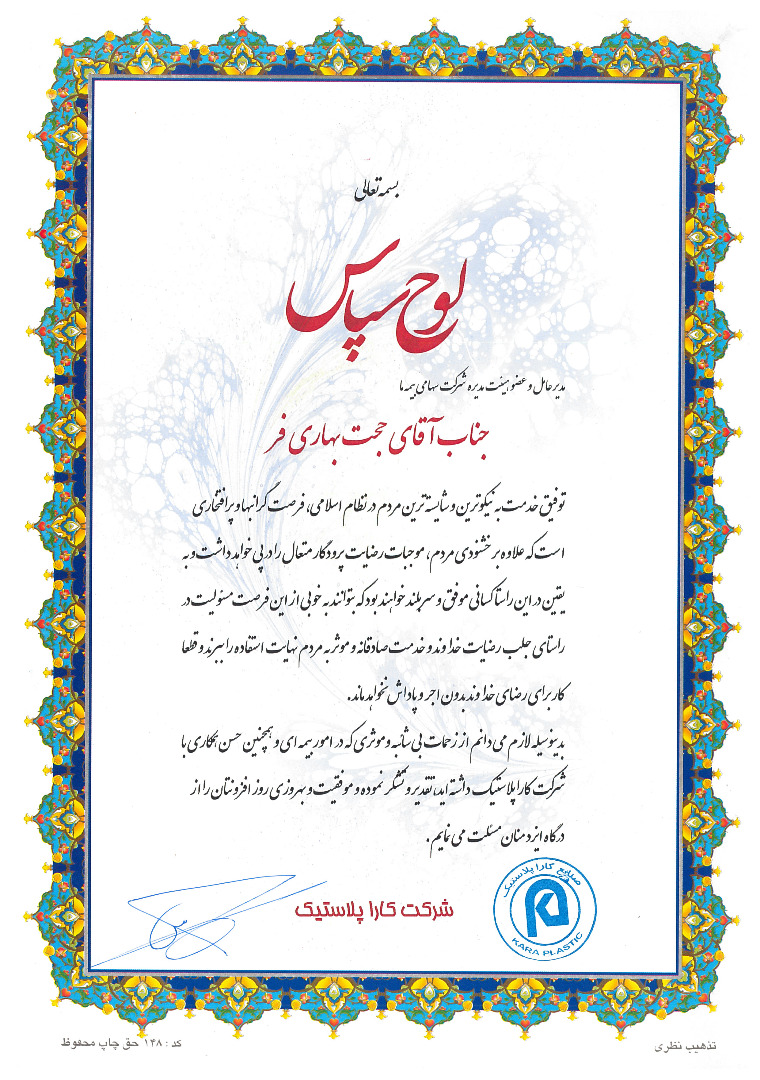 بسمه تعالی
لوح سپاس
مدیر عامل و عضو هیئت مدیره شرکت سهامی بیمه ما
جناب آقای حجت بهاری فر
توفیق خدمت به نیکوترین و شایسته ترین مردم در نظام اسلامی، فرصت گرانبها و پرافتخاری
است که علاوه بر خشنودی مردم، موجبات رضایت پرودگار متعال را در پی خواهد داشت و به
یقین در این راستا کسانی موفق و سربلند خواهند بود که بتوانند به خوبی از این فرصت مسئولیت در
راستای جلب رضایت خداوند و خدمت صادقانه و موثر به مردم نهایت استفاده را ببرند و قطعا
کار برای رضای خداوند بدون اجر و پاداش نخواهد ماند.
بدینوسیله لازم می دانم از زحمات بی شائبه و موثری که در امور بیمه ای و همچنین حسن همکاری با
شرکت کارا پلاستیک داشته اید، تقدیر و تشکر نموده و موفقیت و بهروزی روز افزونتان را از
درگاه ایزد منان مسئلت می نمایم.
صنایع کارا پلاستیک
KARA PLASTIC
شرکت کارا پلاستیک
تذهیب نظری
کد : ۱۴۸ حق چاپ محفوظ